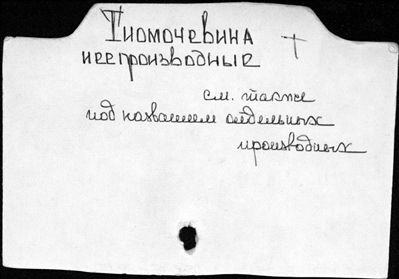 Тиомочевина †
и ее производные
см. также
под названием отдельных
производных